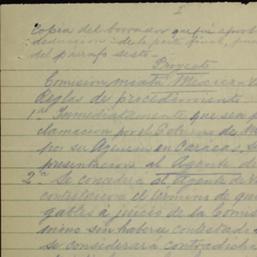 I
Copia del borrador que fué aprob
deducción de la parte final, pu
del párrafo sexto.
Proyecto
Comisión mixta Mexicana V
Reglas de procedimiento
1.ª Inmediatamente que sea p
clamación por el Gobierno de M
por su Agencia en Caracas, s
presentación al Agente de
2.ª Se considera al Agente de V
contestación el término de qu
gables á juicio de la Comis
mino sin haber contestado
se considerará contradicha